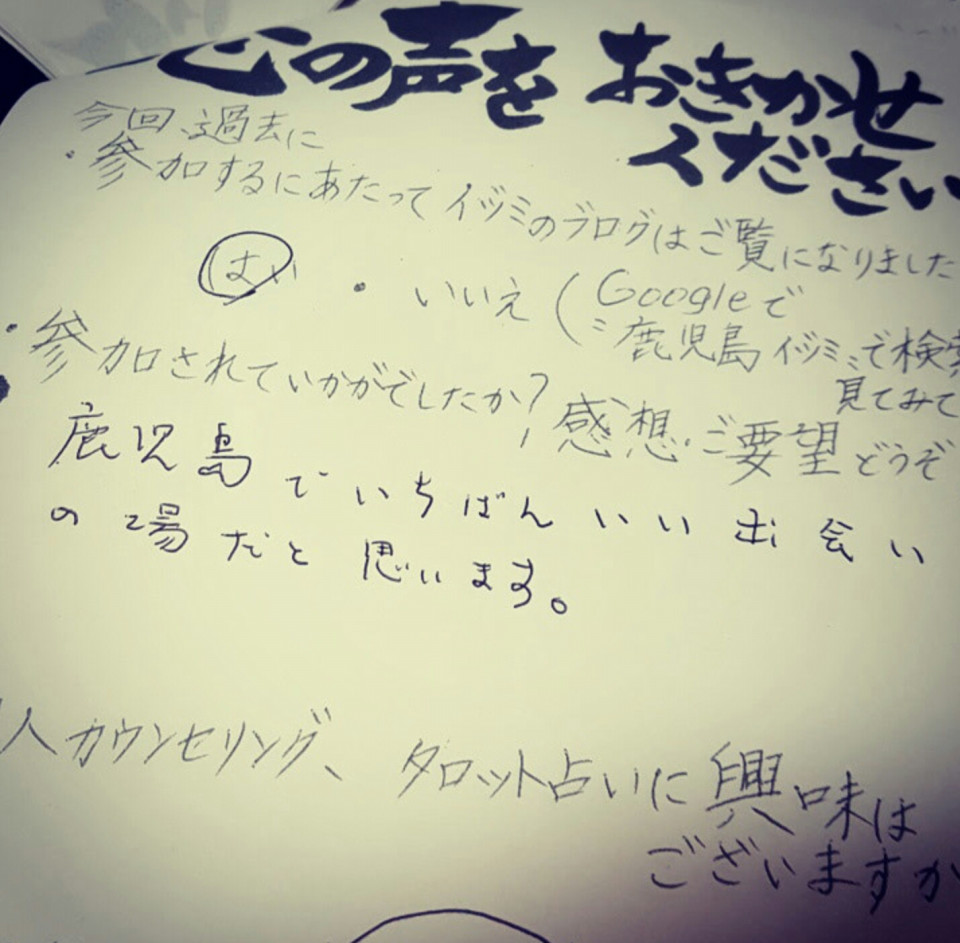 心の声を おきかせ
ください
今回、過去に
・参加するにあたって イヅミのブログはご覧になりました
はい ・ いいえ (Googleで
〝鹿児島 イヅミ〟で検索
見てみて
・参加されていかがでしたか? 感想・ご要望どうぞ
鹿児島でいちばんいい出会い
の場だと思います。
人カウンセリング、タロット占いに興味は
ございますか